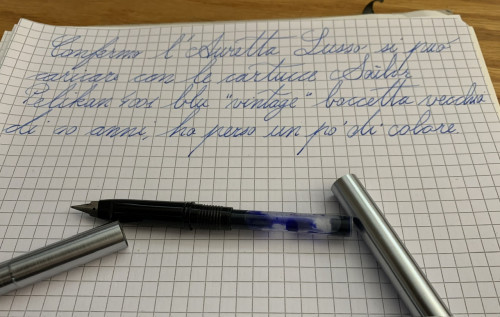 Confermo l'Auretta Lusso si può
caricare con le cartucce
Pelikan 4001 blu "vintage" boccetta vecchia
di 10 anni, ha perso un pò di colore